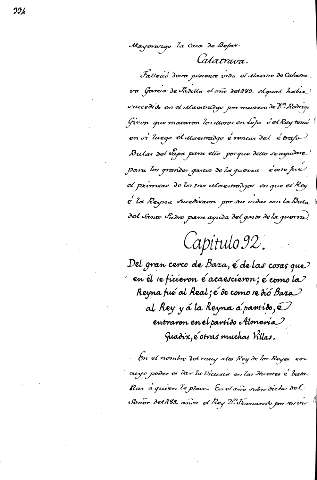 224
Mayorazgo la Casa de Bejar.
Calatrava.
Falleció dura presente vida el Maestre de Calatra
va Garcia de Padilla el año del 1489. el qual habia
sucedido en el Maestradgo por muerte de Dn. Rodrigo
Giron que mataron los Moros en Loja é el Rey tomó
en sí luego el Maestradgo é rentas del é trajo
Bulas del Papa para ello porque dello se ayudara
para los grandes gastos de la guerra é este fué
el primero de los tres Maestradgos en que el Rey
é la Reyna sucedieron por sus vidas con la Bula
del Santo Padre para ayuda del gasto de la guerra
Capitulo 92.
Del gran cerco de Baza, é de las cosas que
en él se ficieron é acaescieron; é como la
Reyna fué al Real; é de como se dió Baza
al Rey y á la Reyna á partido, é
entraron en el partido Almeria
Guadix, é otras muchas Villas.
En el nombre del muy alto Rey de los Reyes
cuyo poder es dar la Victoria en las
á quien le place. En el año sobre dicho del
Señor del 1489 años el Rey Dn. Fernando